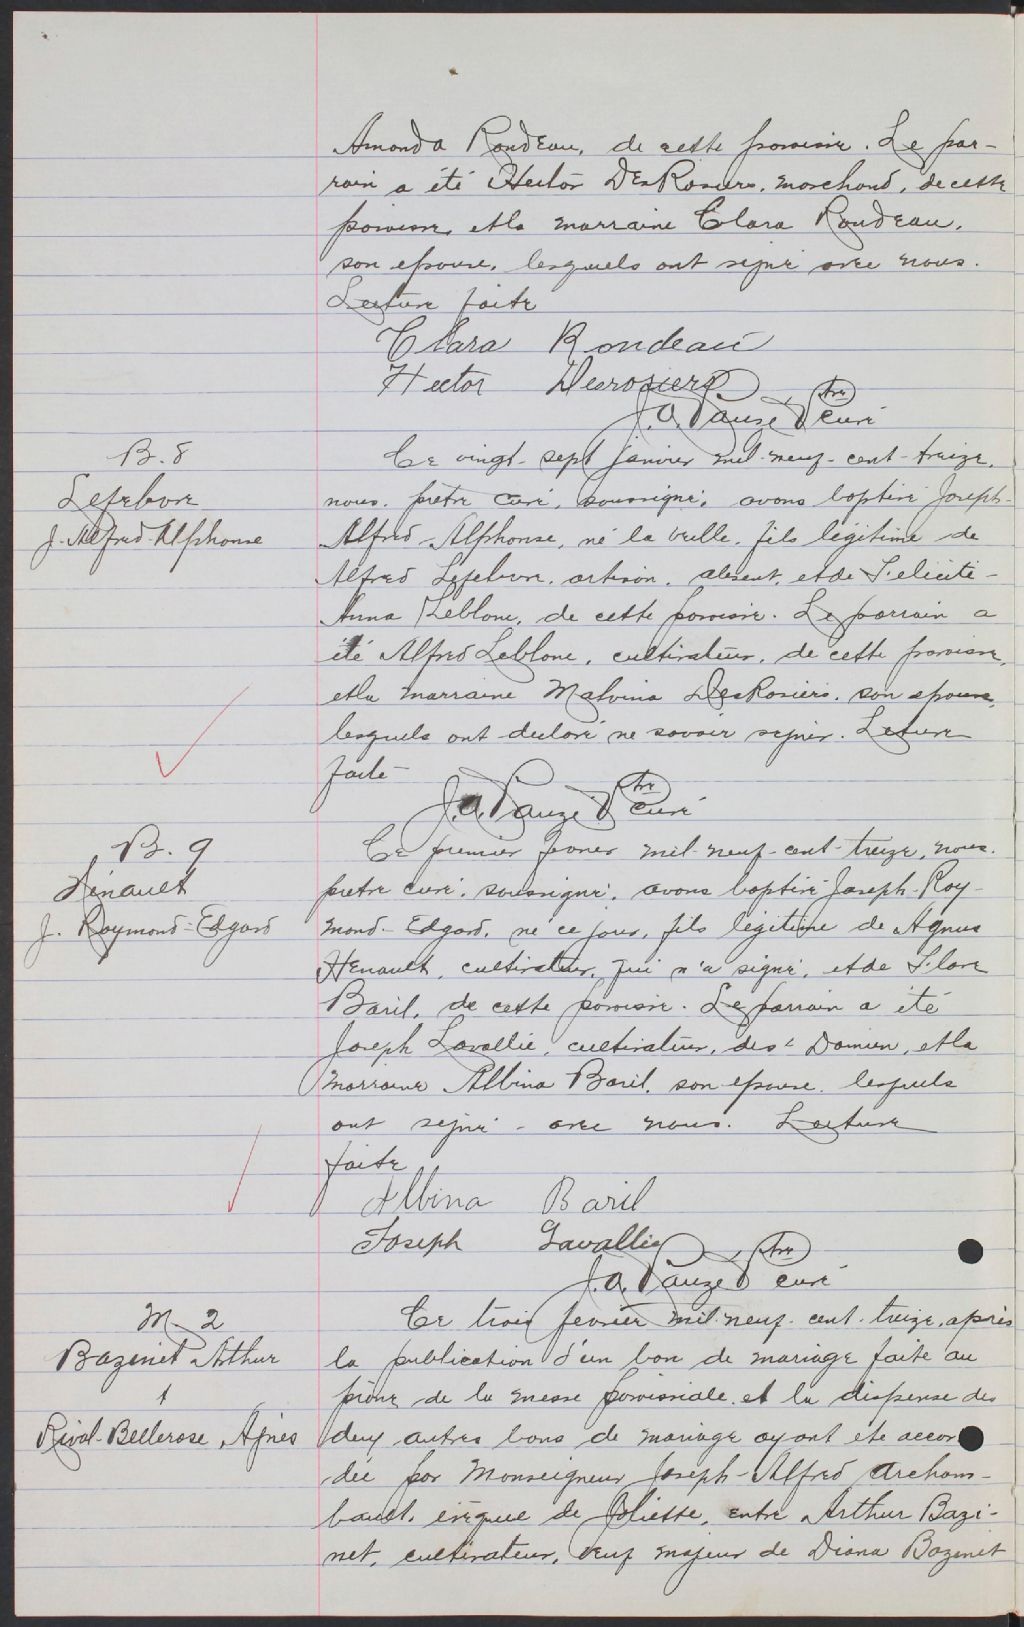 Amanda Rondeau, de cette paroisse. Le par-
rain a été Hector DesRosiers, marchand, de cette
paroisse, et la marraine Clara Rondeau,
son épouse, lesquels ont signé avec nous.
Lecture faite
Clara Rondeau
Hector Desrosiers
J.A. Pauzé Ptre curé
B. 8
Lefebvre
J. Alfred-Alphonse
Ce vingt-sept janvier mil-neuf-cent-treize,
nous, prêtre curé, soussigné, avons baptisé Joseph-
Alfred-Alphonse, né la veille, fils légitime de
Alfred Lefebvre, artisan, absent, et de Félicité-
Anna Leblanc, de cette paroisse. Le parrain a
été Alfred Leblanc, cultivateur, de cette paroisse,
et la marraine Malvina DesRosiers, son épouse,
lesquels ont déclaré ne savoir signer. Lecture
faite
J.A. Pauzé Ptre curé
B. 9
Hénault
J. Raymond-Edgard
Ce premier février mil-neuf-cent-treize, nous,
prêtre curé, soussigné, avons baptisé Joseph-Ray-
mond-Edgard, né ce jour, fils légitime de Agnus
Hénault, cultivateur, qui n'a signé, et de Flore
Baril, de cette paroisse. Le parrain a été
Joseph Lavallée, cultivateur, de St Damien, et la
marraine Albina Baril, son épouse, lesquels
ont signé - avec nous. Lecture
faite
Albina Baril
Joseph Lavallée
J.A. Pauzé Ptre curé
M. 2
Bazinet Arthur
&
Rival-Bellerose, Agnès
Ce trois février mil-neuf-cent-treize, après
la publication d'un ban de mariage faite au
prône de la messe paroissiale et la dispense des
deux autres bans de mariage ayant été accor
dée par Monseigneur Joseph-Alfred Archam-
bault, évêque de Joliette, entre Arthur Bazi-
net, cultivateur, veuf majeur de Diana Bazinet